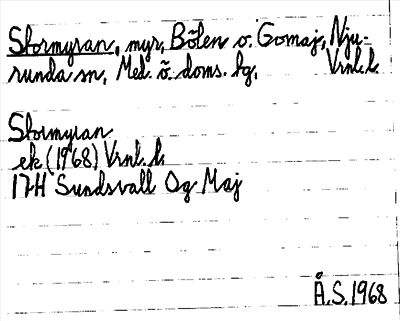 Stormyran, myr, Bölen o. Gomaj, Nju-
runda sn, Med. ö. doms. hg, Vrnl. l.
Stormyran
ek (1968) Vrnl. l.
17H Sundsvall Og Maj
Å.S. 1968